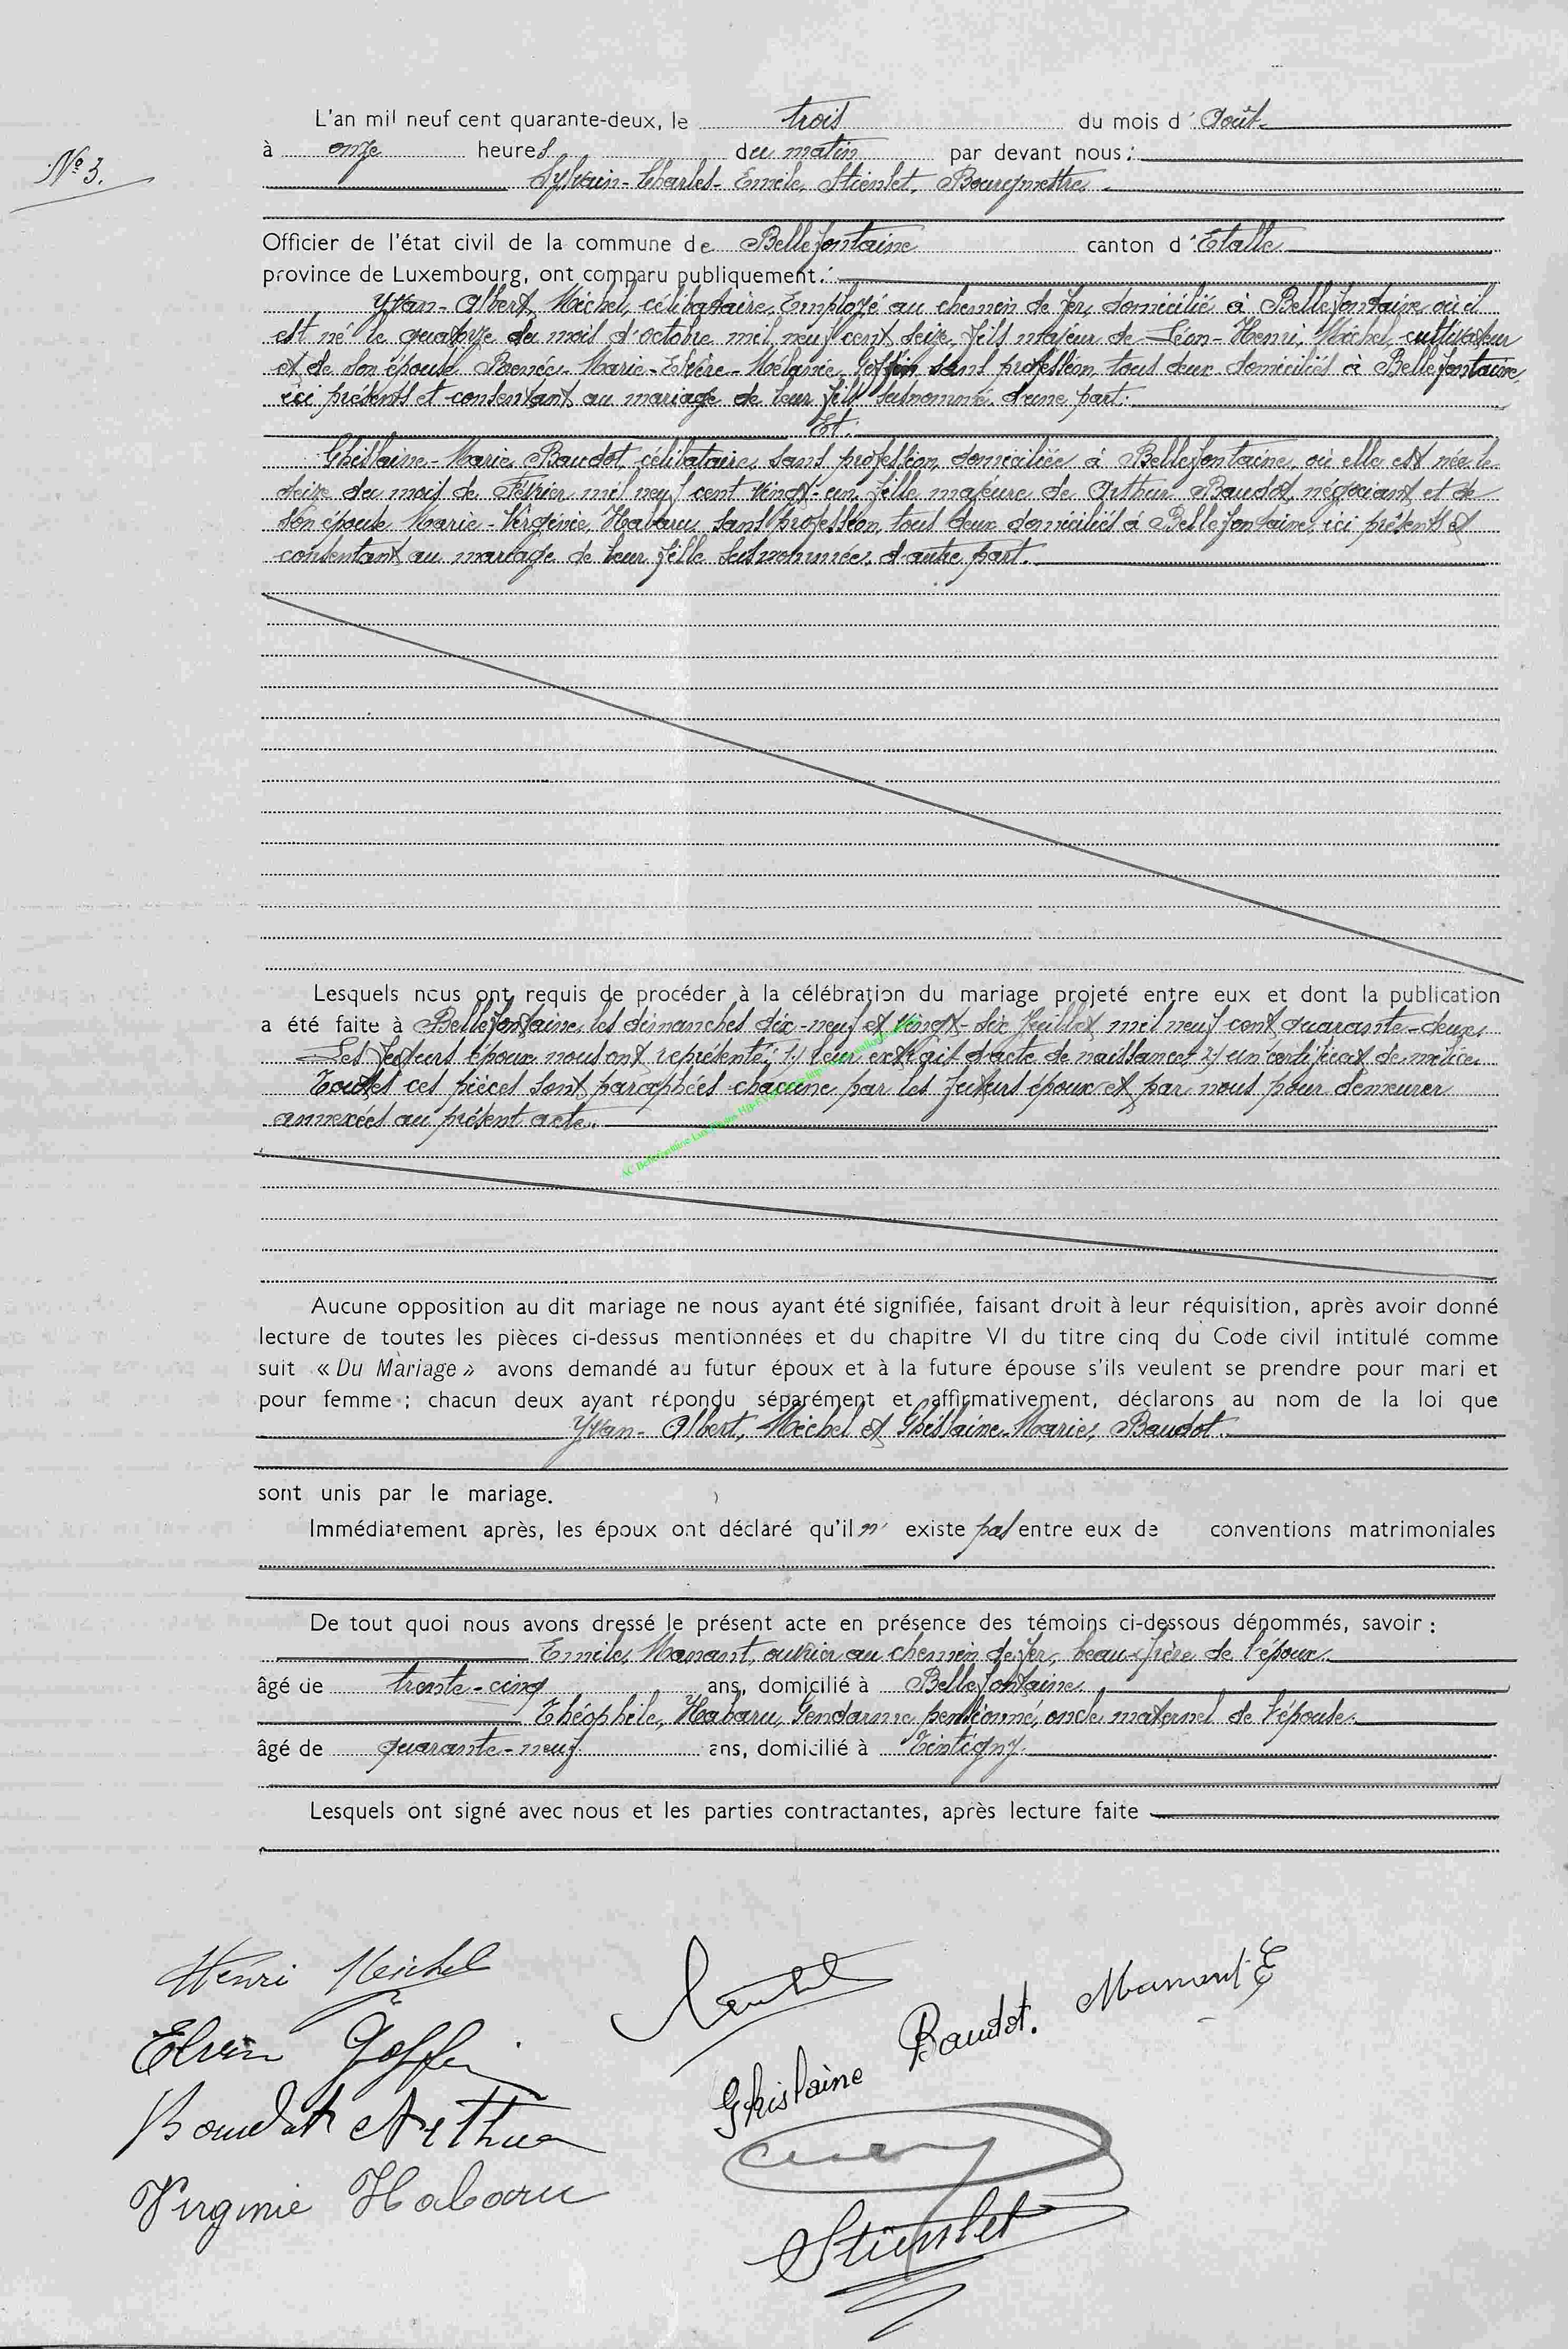 L'an mil neuf cent quarante-deux, le trois du mois d'Août
N° 3.
à onze heures du matin par devant nous:
Sylvain-Charles-Emile, Stienlet, Bourgmestre
Officier de l'état civil de la commune de Bellefontaine canton d'Etalle
province de Luxembourg, ont comparu publiquement:
Yvan-Albert, Michel, célibataire, Employé au chemin de fer, domicilié à Bellefontaine où il
est né le quatorze du mois d'octobre mil neuf cent seize, fils majeur de Léon-Henri, Michel, cultivateur
et de son épouse Marie- Mélanie, Goffin sans profession tous deux domiciliés à Bellefontaine,
ici présents et consentant au mariage de leur fils susnommé, d'une part.
Et.
Ghislaine-Marie, Baudot, célibataire, sans profession, domiciliée à Bellefontaine, où elle est née le
seize du mois de Février mil neuf cent vingt-un, fille majeure de Arthur Baudot, négociant et de
son épouse Marie-Virginie, Habaru, sans profession, tous deux domiciliés à Bellefontaine, ici présents et
consentant au mariage de leur fille susnommée, d'autre part.
Lesquels nous ont requis de procéder à la célébration du mariage projeté entre eux et dont la publication
a été faite à Bellefontaine, les dimanches dix-neuf et vingt-six Juillet mil neuf cent quarante-deux
Les futurs époux nous ont représenté; 1) leur extrait d'acte de naissance; 2) un certificat de milice.
Toutes ces pièces sont paraphées chacune par les futurs époux et par nous pour demeurer
annexées au présent acte.
Aucune opposition au dit mariage ne nous ayant été signifiée, faisant droit à leur réquisition, après avoir donné
lecture de toutes les pièces ci-dessus mentionnées et du chapitre VI du titre cinq du Code civil intitulé comme
suit « Du Mariage » avons demandé au futur époux et à la future épouse s'ils veulent se prendre pour mari et
pour femme ; chacun deux ayant répondu séparément et affirmativement, déclarons au nom de la loi que
Yvan-Albert, Michel et Ghislaine-Marie, Baudot.
sont unis par le mariage.
Immédiatement après, les époux ont déclaré qu'il n' existe pas entre eux de conventions matrimoniales
De tout quoi nous avons dressé le présent acte en présence des témoins ci-dessous dénommés, savoir :
Emile, Manant, ouvrier au chemin de fer, beau-frère de l'époux
âgé de trente-cinq ans, domicilié à Bellefontaine
Théophile, Habaru, Gendarme pensionné, oncle maternel de l'épouse
âgé de quarante-neuf ans, domicilié à Tintigny
Lesquels ont signé avec nous et les parties contractantes, après lecture faite
Henri Michel
Manant E
Elvire Goffin
Ghislaine Baudot.
Baudot Arthur
Virginie Habaru
Stienlet